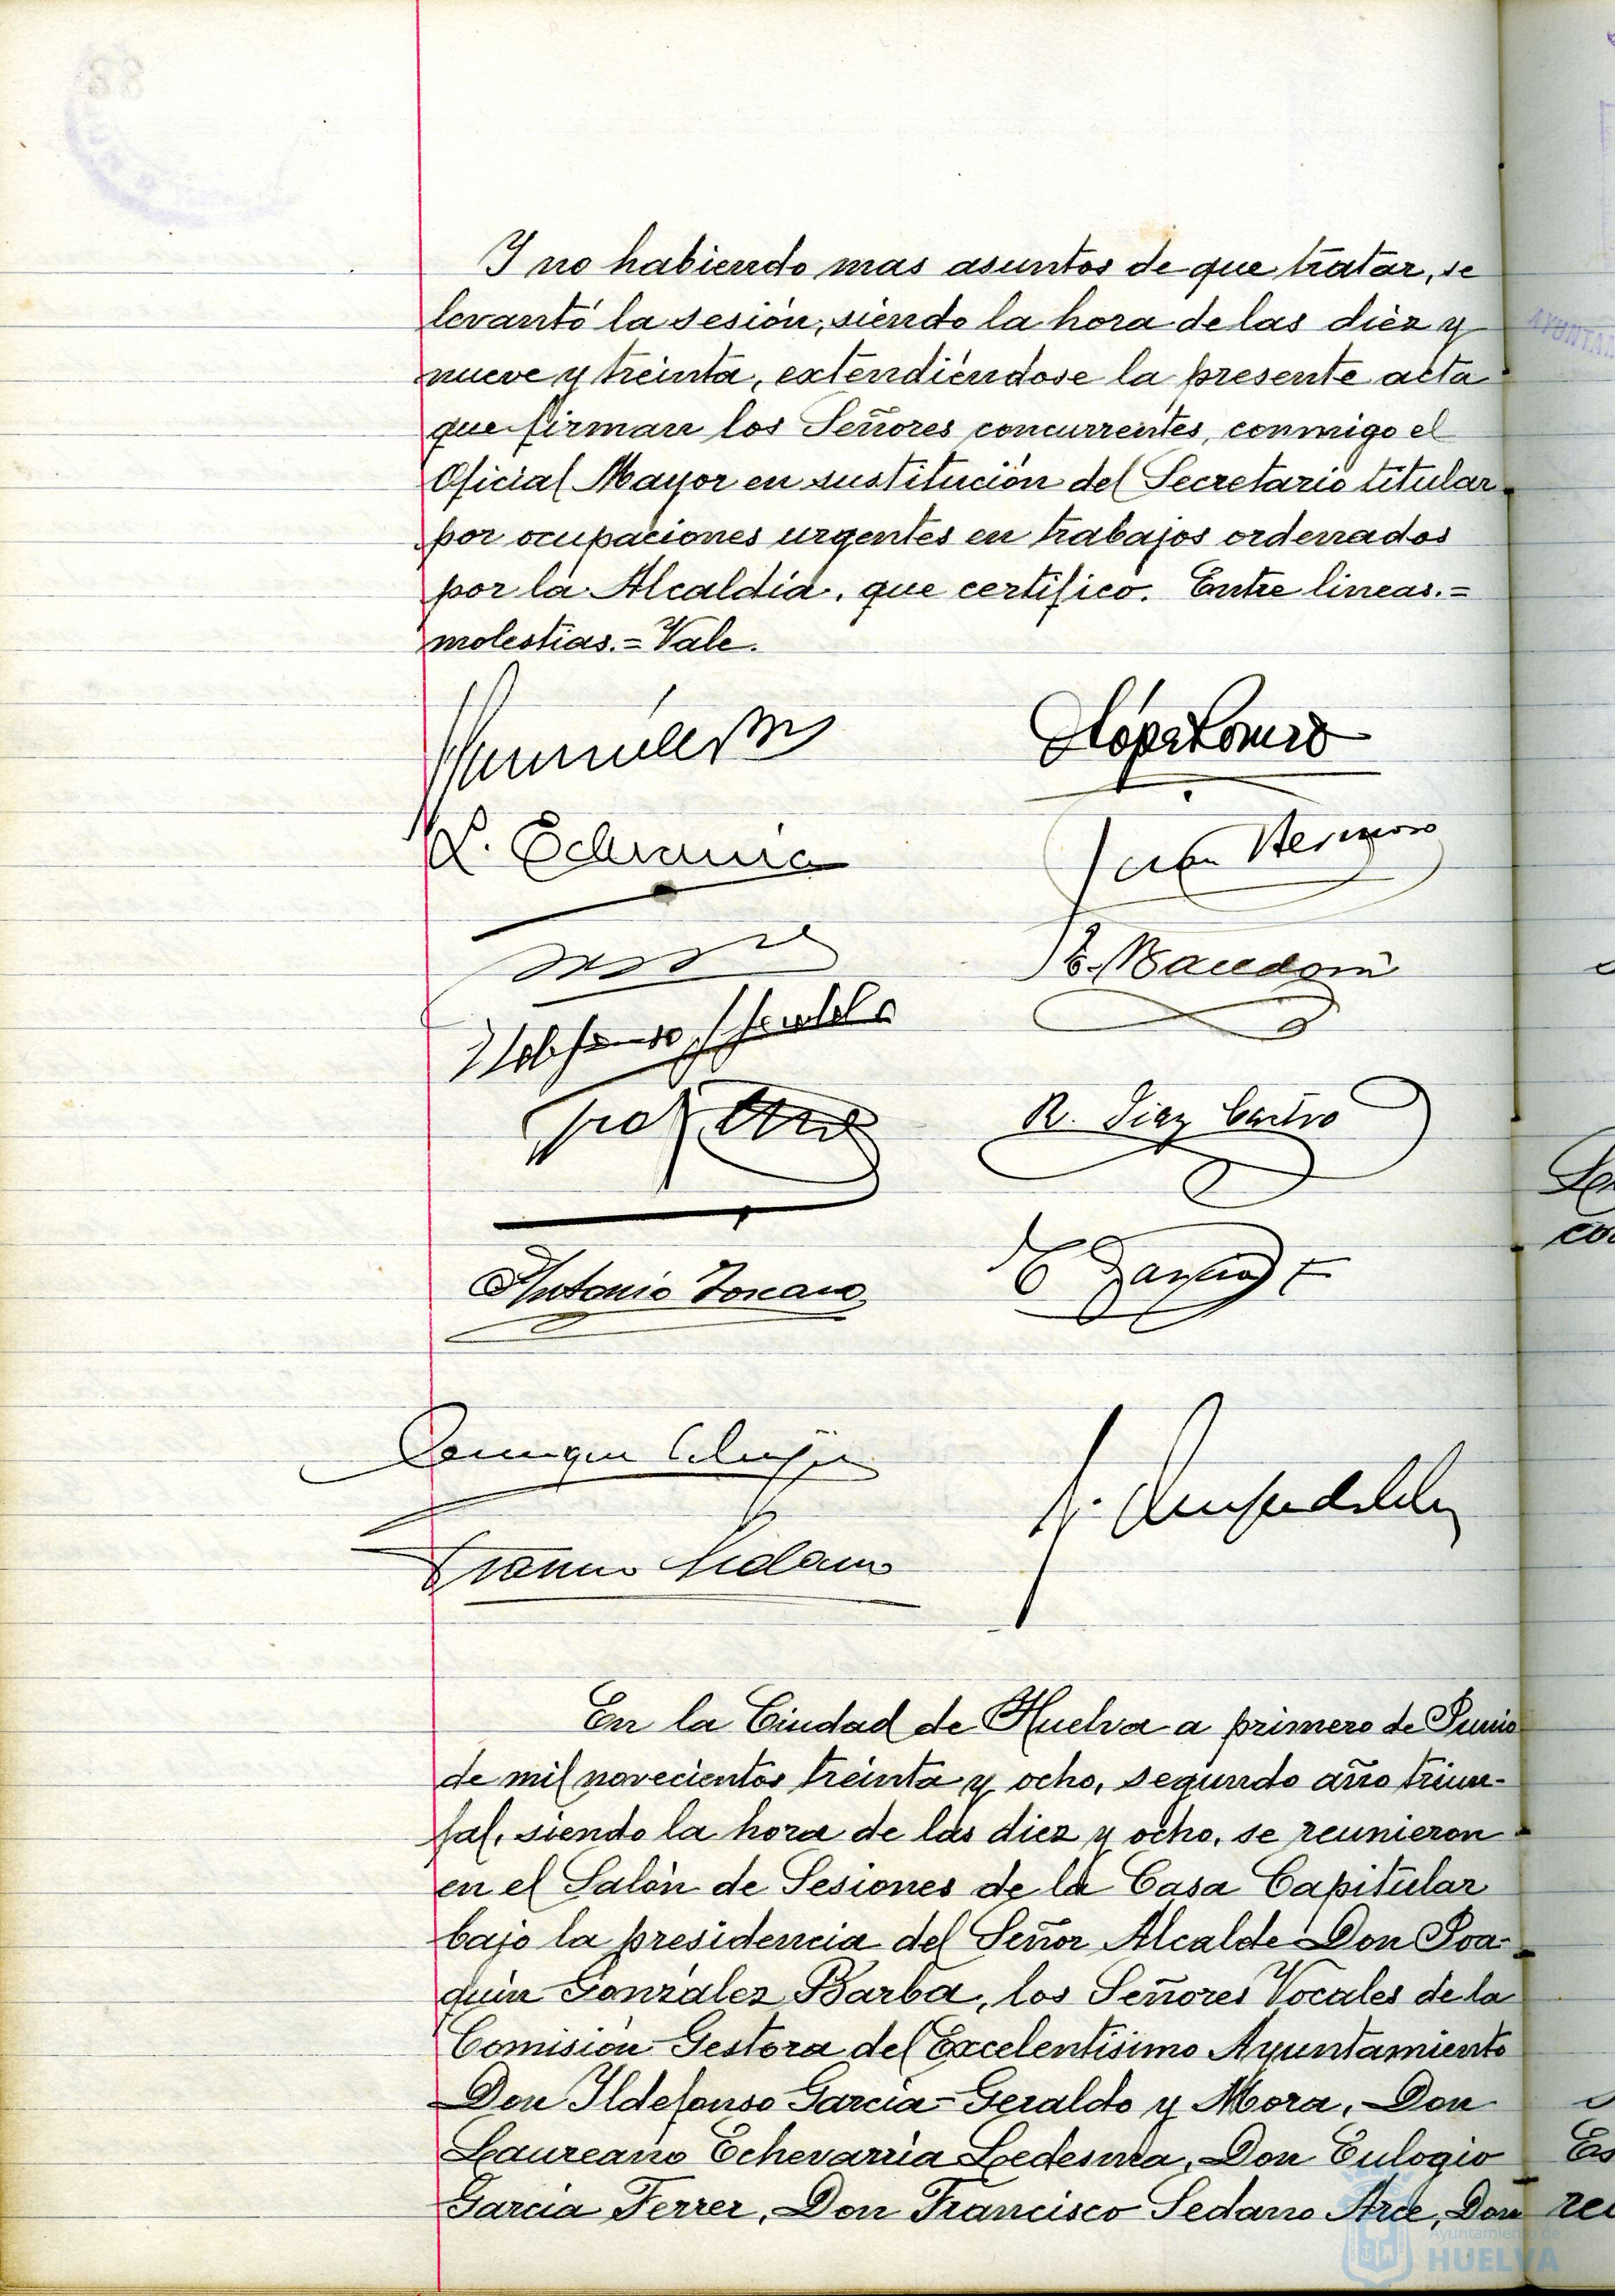 Y no habiendo mas asuntos de que tratar, se
levantó la sesión, siendo la hora de las diez y
nueve y treinta, extendiéndose la presente acta
que firman los Señores concurrentes, conmigo el
Oficial Mayor en sustitución del Secretario titular
por ocupaciones urgentes en trabajos ordenados
por la Alcaldía, que certifico. Entre lineas.=
molestias.= Vale.
L. Echevarria
Juan Hermoso
R. Diaz Castro
Antonio Toscano
En la Ciudad de Huelva a primero de Junio
de mil novecientos treinta y ocho, segundo año triun-
fal, siendo la hora de las diez y ocho, se reunieron
en el Salón de Sesiones de la Casa Capitular
bajo la presidencia del Señor Alcalde Don Joa-
quin González Barba, los Señores Vocales de la
Comisión Gestora del Excelentísimo Ayuntamiento
Don Ildefonso Garcia-Geraldo y Mora, Don
Laureano Echevarria Ledesma, Don Eulogio
Garcia Ferrer, Don Francisco Sedano Arce, Don
Ayuntamiento de
HUELVA